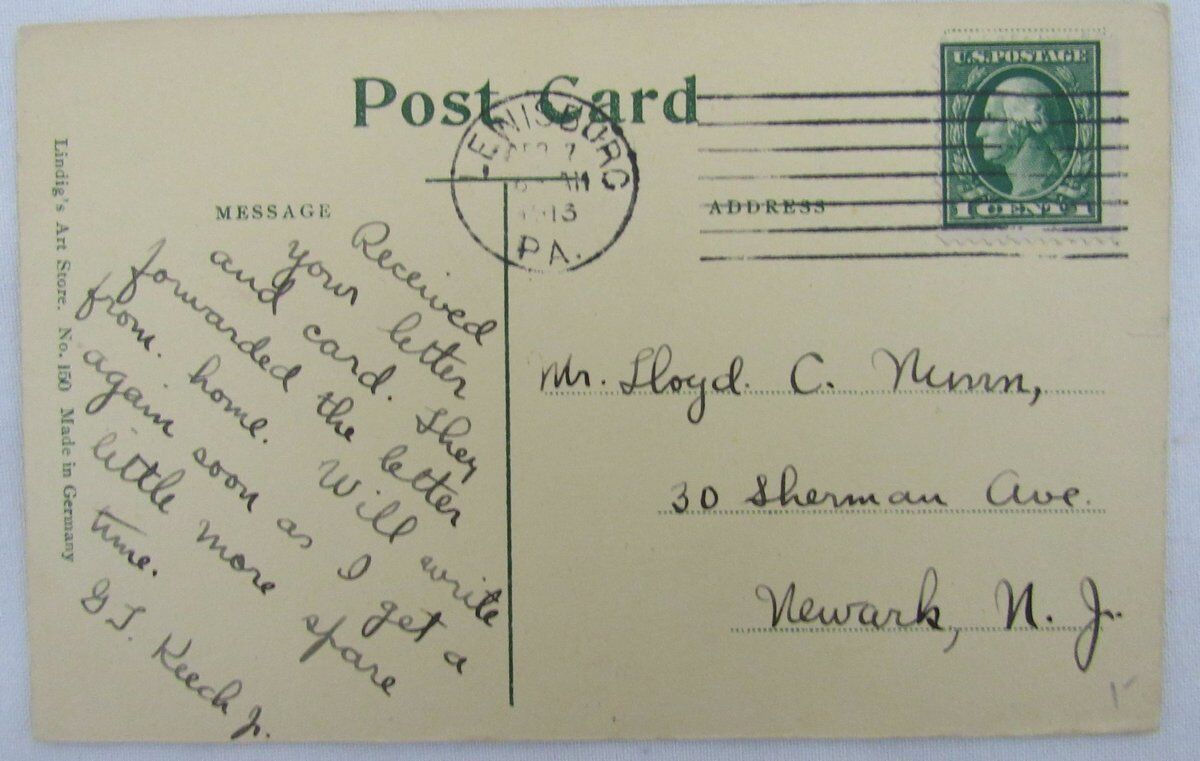 Post Card
U.S. POSTAGE
1 CENT 1
LEWISBURG
7
1913
PA.
MESSAGE
ADDRESS
Lindig's Art Store. No. 150 Made in Germany
Received
your letter
and card. They
forwarded the letter
from. home. Will write
again soon as I get a
little more spare
time.
G L. Keech Jr.
Mr. Lloyd. C. Nunn,
30 Sherman Ave.
Newark, N. J.